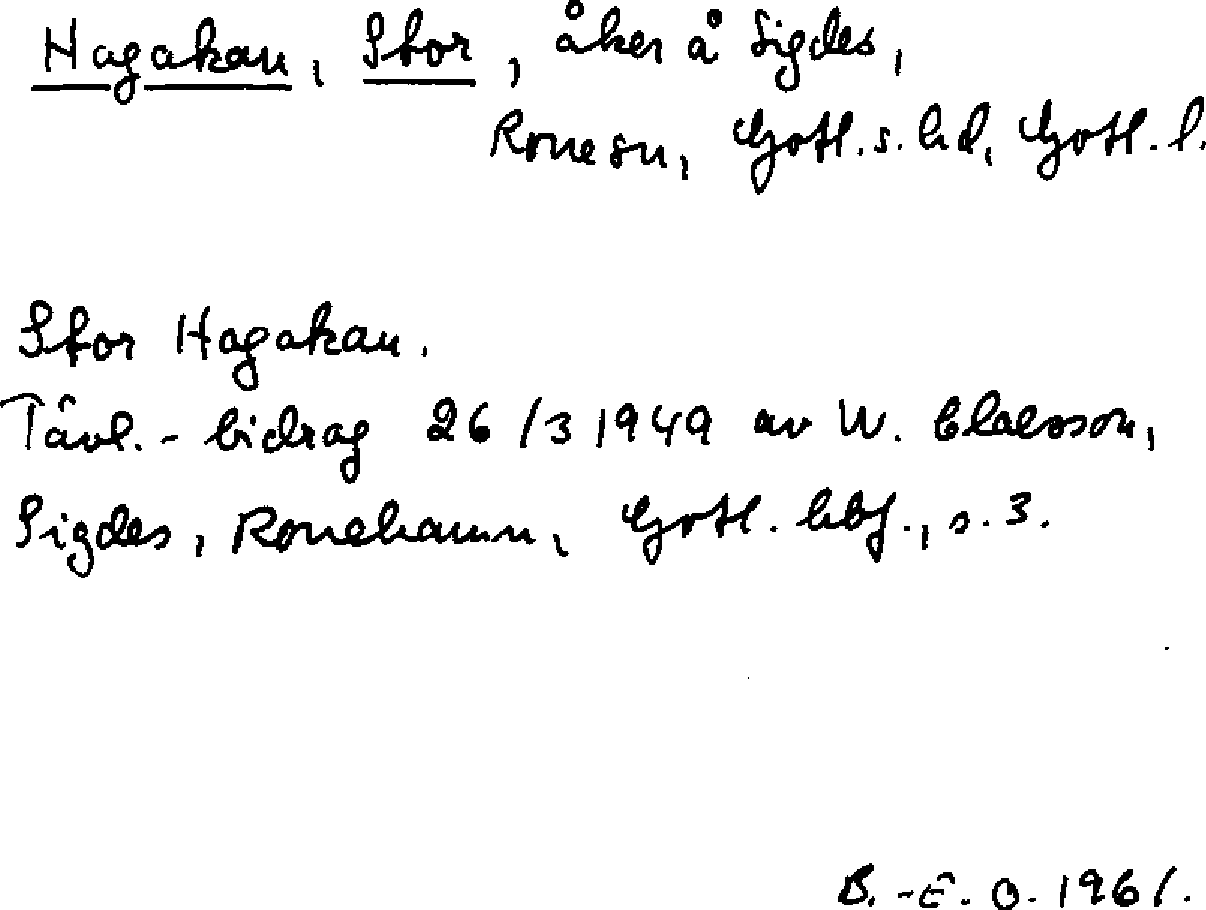 Hagakau, Stor, åker å Sigdes,
Rone sn, Gotl. s. hd, Gotl. l.
Stor Hagakau.
Tävl.-bidrag 26/3 1949 av W. Claesson,
Sigdes, Ronehamn, Gotl. hbf., s. 3.
B.-E. O. 1961.